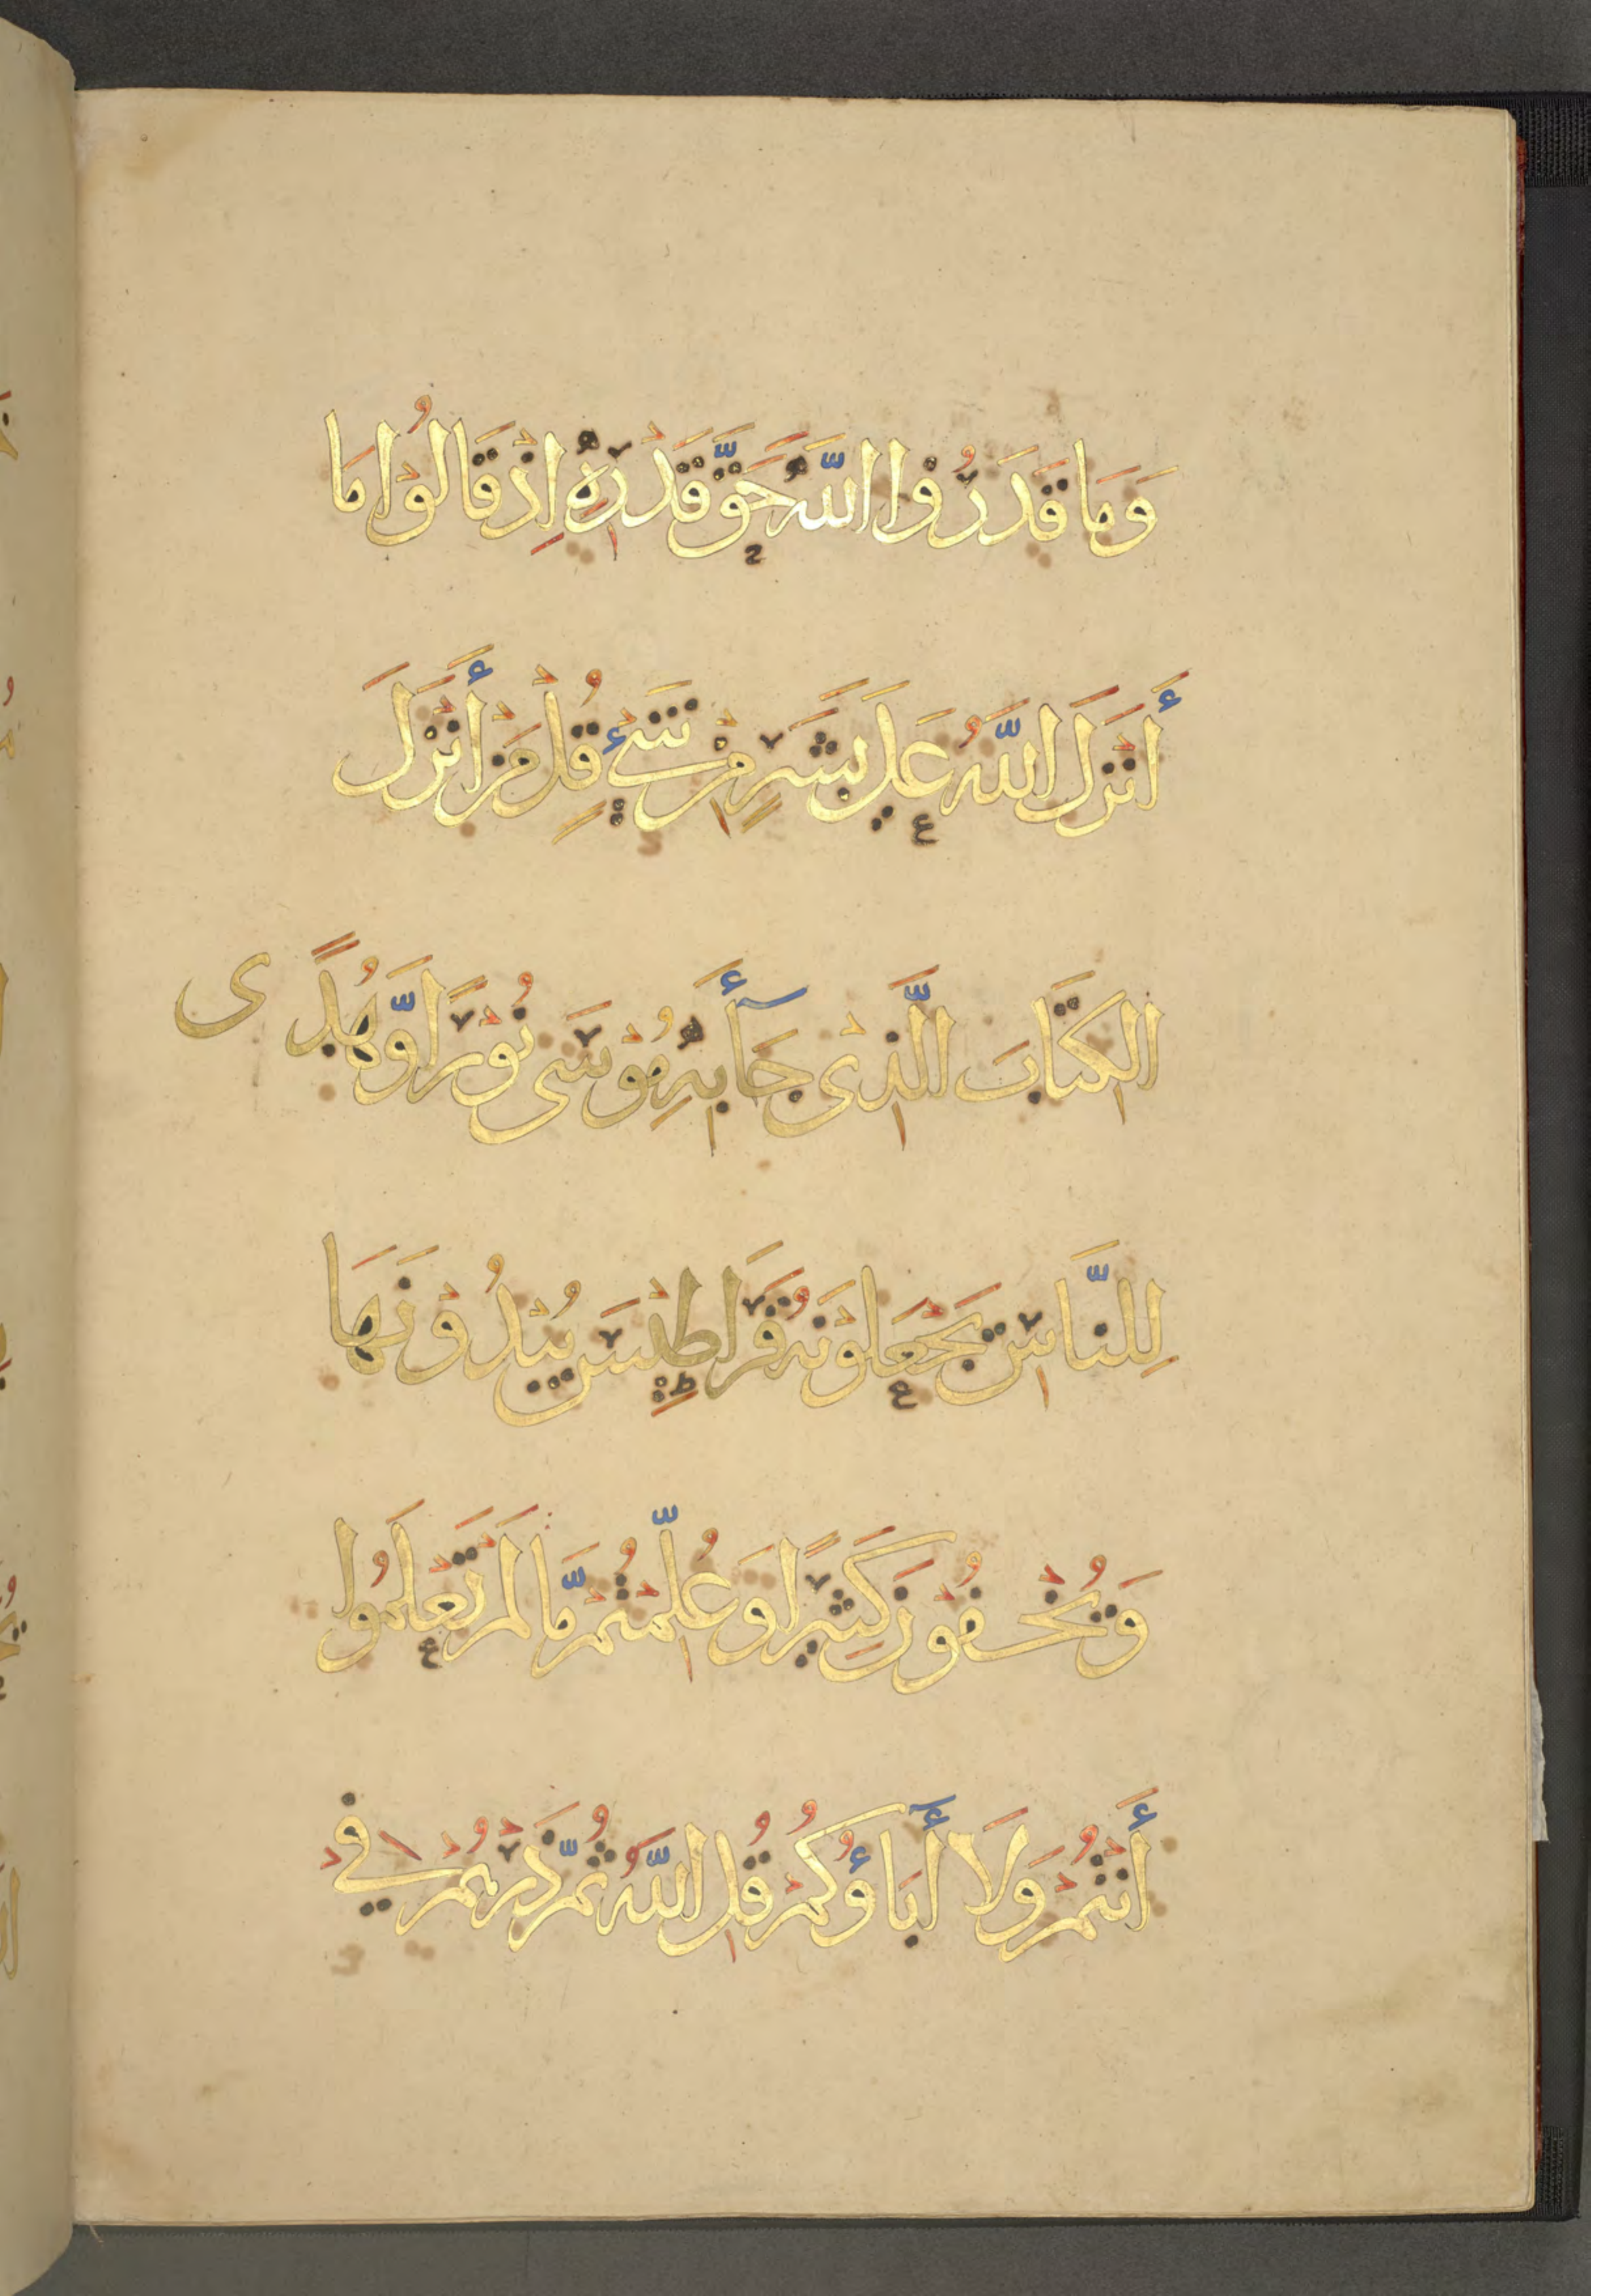 وَمَا قَدَرُوْا اللَّهَ حَقَّ قَدْرِهٖ اِذْ قَالُوْا مَا
أَنْزَلَ اللَّهُ عَلَى بَشَرٍ مِنْ شَيْءٍ قُلْ مَنْ أَنْزَلَ
الكِتَابَ الَّذِىْ جَآءَ بِهٖ مُوْسَى نُوْرًا وَّهُدًى
لِلنَّاسِ تَجْعَلُوْنَهُ قَرَاطِيْسَ يُبْدُوْنَهَا
وَتُخْفُوْنَ كَثِيْرًا وَعُلِّمْتُمْ مَّا لَمْ تَعْلَمُوا
أَنْتُمْ وَلَا أَبَاؤُكُمْ قُلِ اللَّهُ ثُمَّ ذَرْهُمْ فِيْ